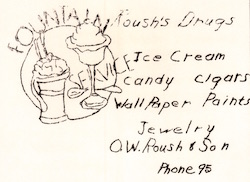 FOUNTAIN
Roush's Drugs
Ice Cream
Candy Cigars
Wall Paper Paints
Jewelry
O.W. Roush & Son
Phone 95